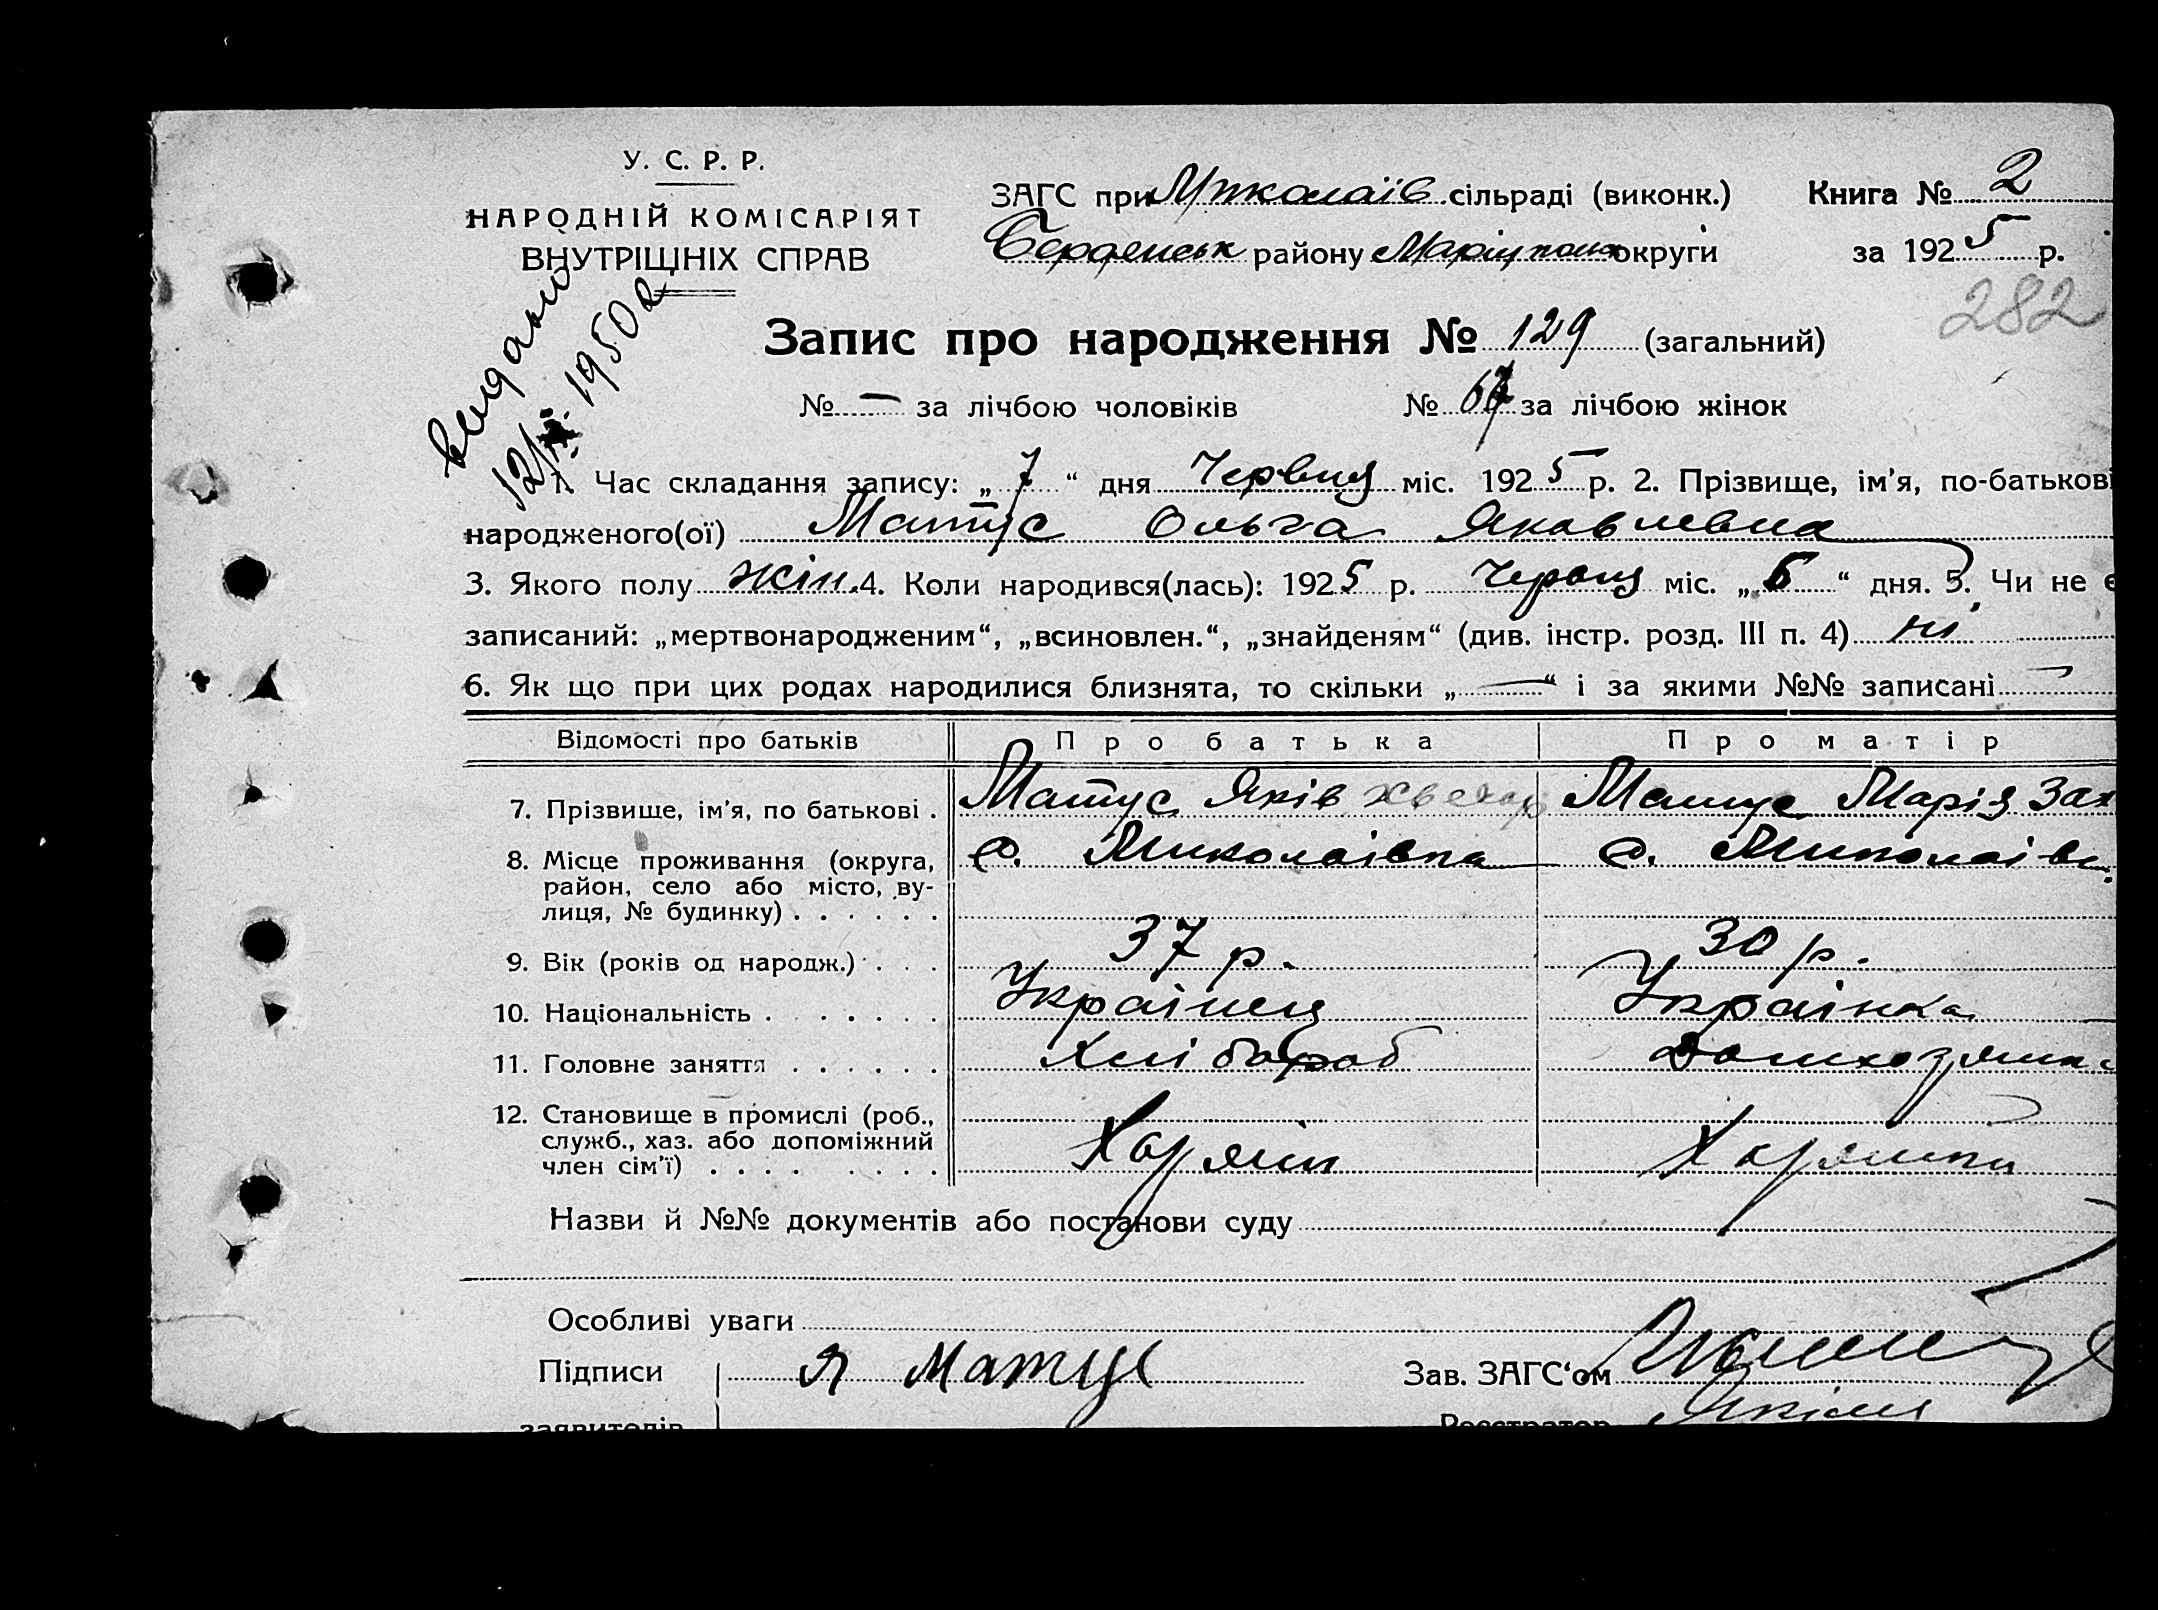 У. С. Р. Р.
НАРОДНІЙ КОМІСАРІЯТ
ВНУТРІШНІХ СПРАВ
ЗАГС при Миколаїв. сільраді (виконк.) Книга № 2
Бердянськ району Маріупольск округи за 1925 р.
282
видано
12/ 1950 р
Запис про народження № 129 (загальний)
№ — за лічбою чоловіків № 67 за лічбою жінок
1. Час складання запису: „7“ дня Червця міс. 1925 р. 2. Прізвище, ім’я, по-батькові
народженого(ої) Матус Ольга Яковлевна
3. Якого полу жін. 4. Коли народився(лась): 1925 р. Червця міс. „5“ дня. 5. Чи не є
записаний: „мертвонародженим“, „всиновлен.“, „знайденям“ (див. інстр. розд. III п. 4) ні
6. Як що при цих родах народилися близнята, то скільки „—“ і за якими №№ записані —
Відомості про батьків Про батька Про матір
7. Прізвище, ім’я, по батькові . Матус Яків Матус Марія Зах
8. Місце проживання (округа, с. Миколаівка с. Миколаівк
район, село або місто, ву-
лиця, № будинку) . . . . . .
9. Вік (років од народж.) . . . 37 р. 30 р.
10. Національність . . . . . . . Українец Українка
11. Головне заняття . . . . . . Хлібороб Домхозяйка
12. Становище в промислі (роб.,
служб., хаз. або допоміжний
член сім’ї) . . . . . . . . Харзяїн Харзяйка
Назви й №№ документів або постанови суду
Особливі уваги
Підписи Я Матус Зав. ЗАГС‘ом
заявителів Реєстратор